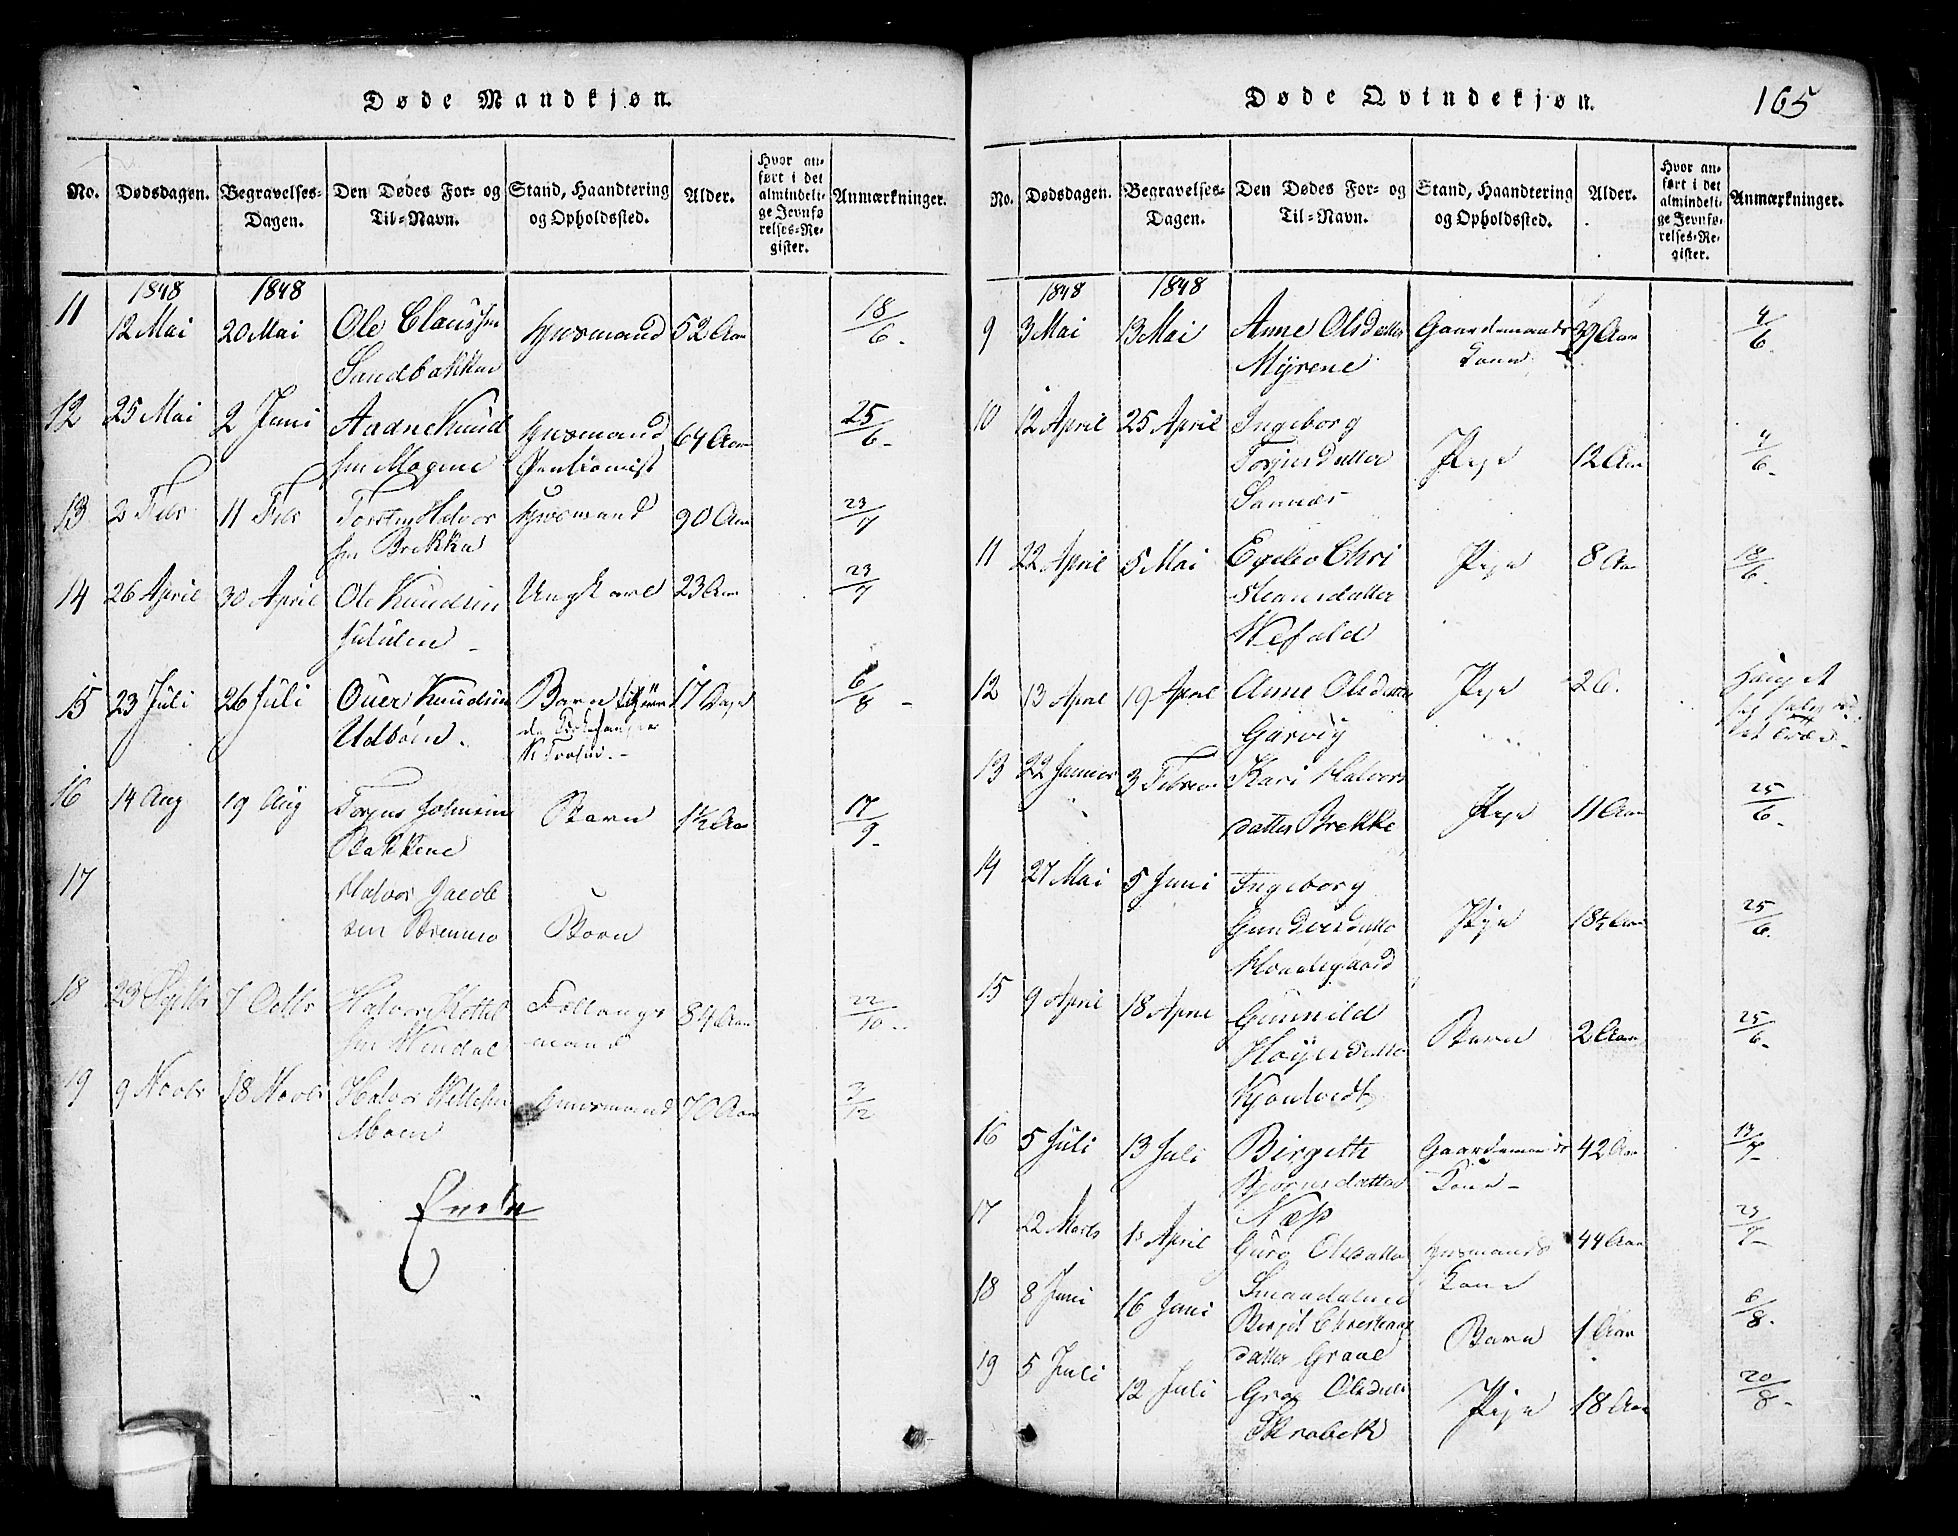 Døde Mandkjøn.
No. Dødsdagen. Begravelses-Dagen. Den Dødes For- og Til-Navn. Stand, Haandtering og Opholdssted. Alder. Hvor anført i det almindelige Jevnførelses-Register. Anmærkninger.
1848 1848
11 12 Mai 20 Mai Ole Claussen Husmand 52 Aar 18/6.
Sandbakken
12 25 Mai 2 Juni Aadne Knud Husmand 64 Aar 25/6-
sen Mogene Pentionist
13 2 Febr 11 Febr Torsten Halvor Husmand 90 Aar 23/7
sen Brekka
14 26 April 30 April Ole Knudsen Ungkarl 23 Aar 23/7
15 23 Juli 26 Juli Knudsen Barn 17 Dage 6/8 -
Udbøen.
16 14 Aug 19 Aug Torjus Johnsen Barn 1½ Aar 17/9-
Bakkene
17 Halvor Jacob
sen Bremmo Barn
18 23 Septbr 7 Octbr Halvor Kittel Follaugs 84 Aar 22/10..
sen mand
19 9 Novbr 18 Novbr Halvor Husmand 70 Aar 3/12
Moen
Døde Qvindekjøn. 165
No. Dødsdagen. Begravelses-Dagen. Den Dødes For- og Til-Navn. Stand, Haandtering og Opholdssted. Alder. Hvor anført i det almindelige Jevnførelses-Register. Anmærkninger.
1848 1848
9 3 Mai 13 Mai Anne Olsdatter Gaardemands 39 Aar 4/6.
Myrene Kone
10 12 April 25 April Ingeborg
Torjusdatter Pige 12 Aar 4/6.
Sannæs
11 22 April 5 Mai Chri Pige 8 Aar 18/6.
stiansdatter
12 13 April 19 April Anne Olsdatter Pige 26.
Garvig
13 22 Januar 3 Februar Kari Halvors
datter Brekke Pige 11 Aar 25/6.
14 27 Mai 5 Juni Ingeborg
Gundersdatter Pige 18½ Aar 25/6.
15 9 April 18 April Gunnild
Barn 2 Aar 25/6-
16 5 Juli 13 Juli Birgith Gaardemands 42 Aar 17/7-
Bjørnsdatter Kone -
Næs
17 22 Marts April Guro Olsdatter Husmands 44 Aar 23/7-
Kone
18 8 Juni 16 Juni Birgit Christians Barn 1 Aar 6/8.
datter Graae
19 5 Juli 12 Juli Gro Pige 18 Aar 20/8-
Skrobek